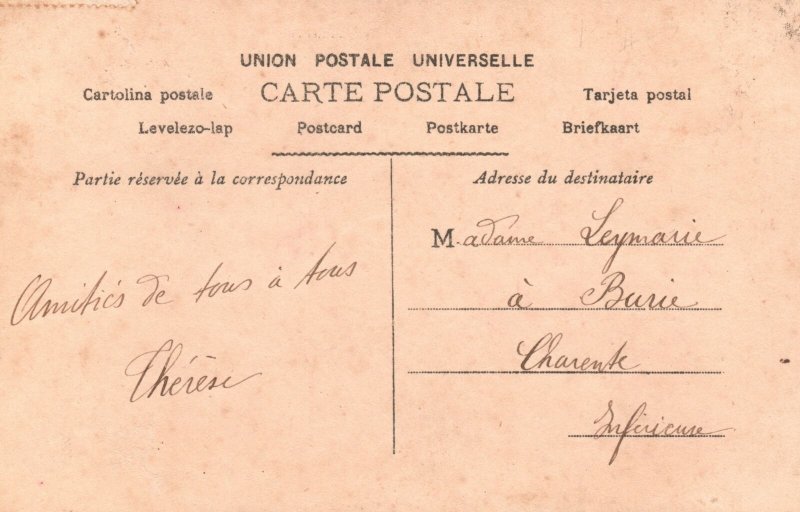 UNION POSTALE UNIVERSELLE
Cartolina postale CARTE POSTALE Tarjeta postal
Levelezo-lap Postcard Postkarte Briefkaart
Partie réservée à la correspondance
Amitiés de tous à tous
Thérèse
Adresse du destinataire
Madame Leymarie
à Burie
Charente
Inférieure